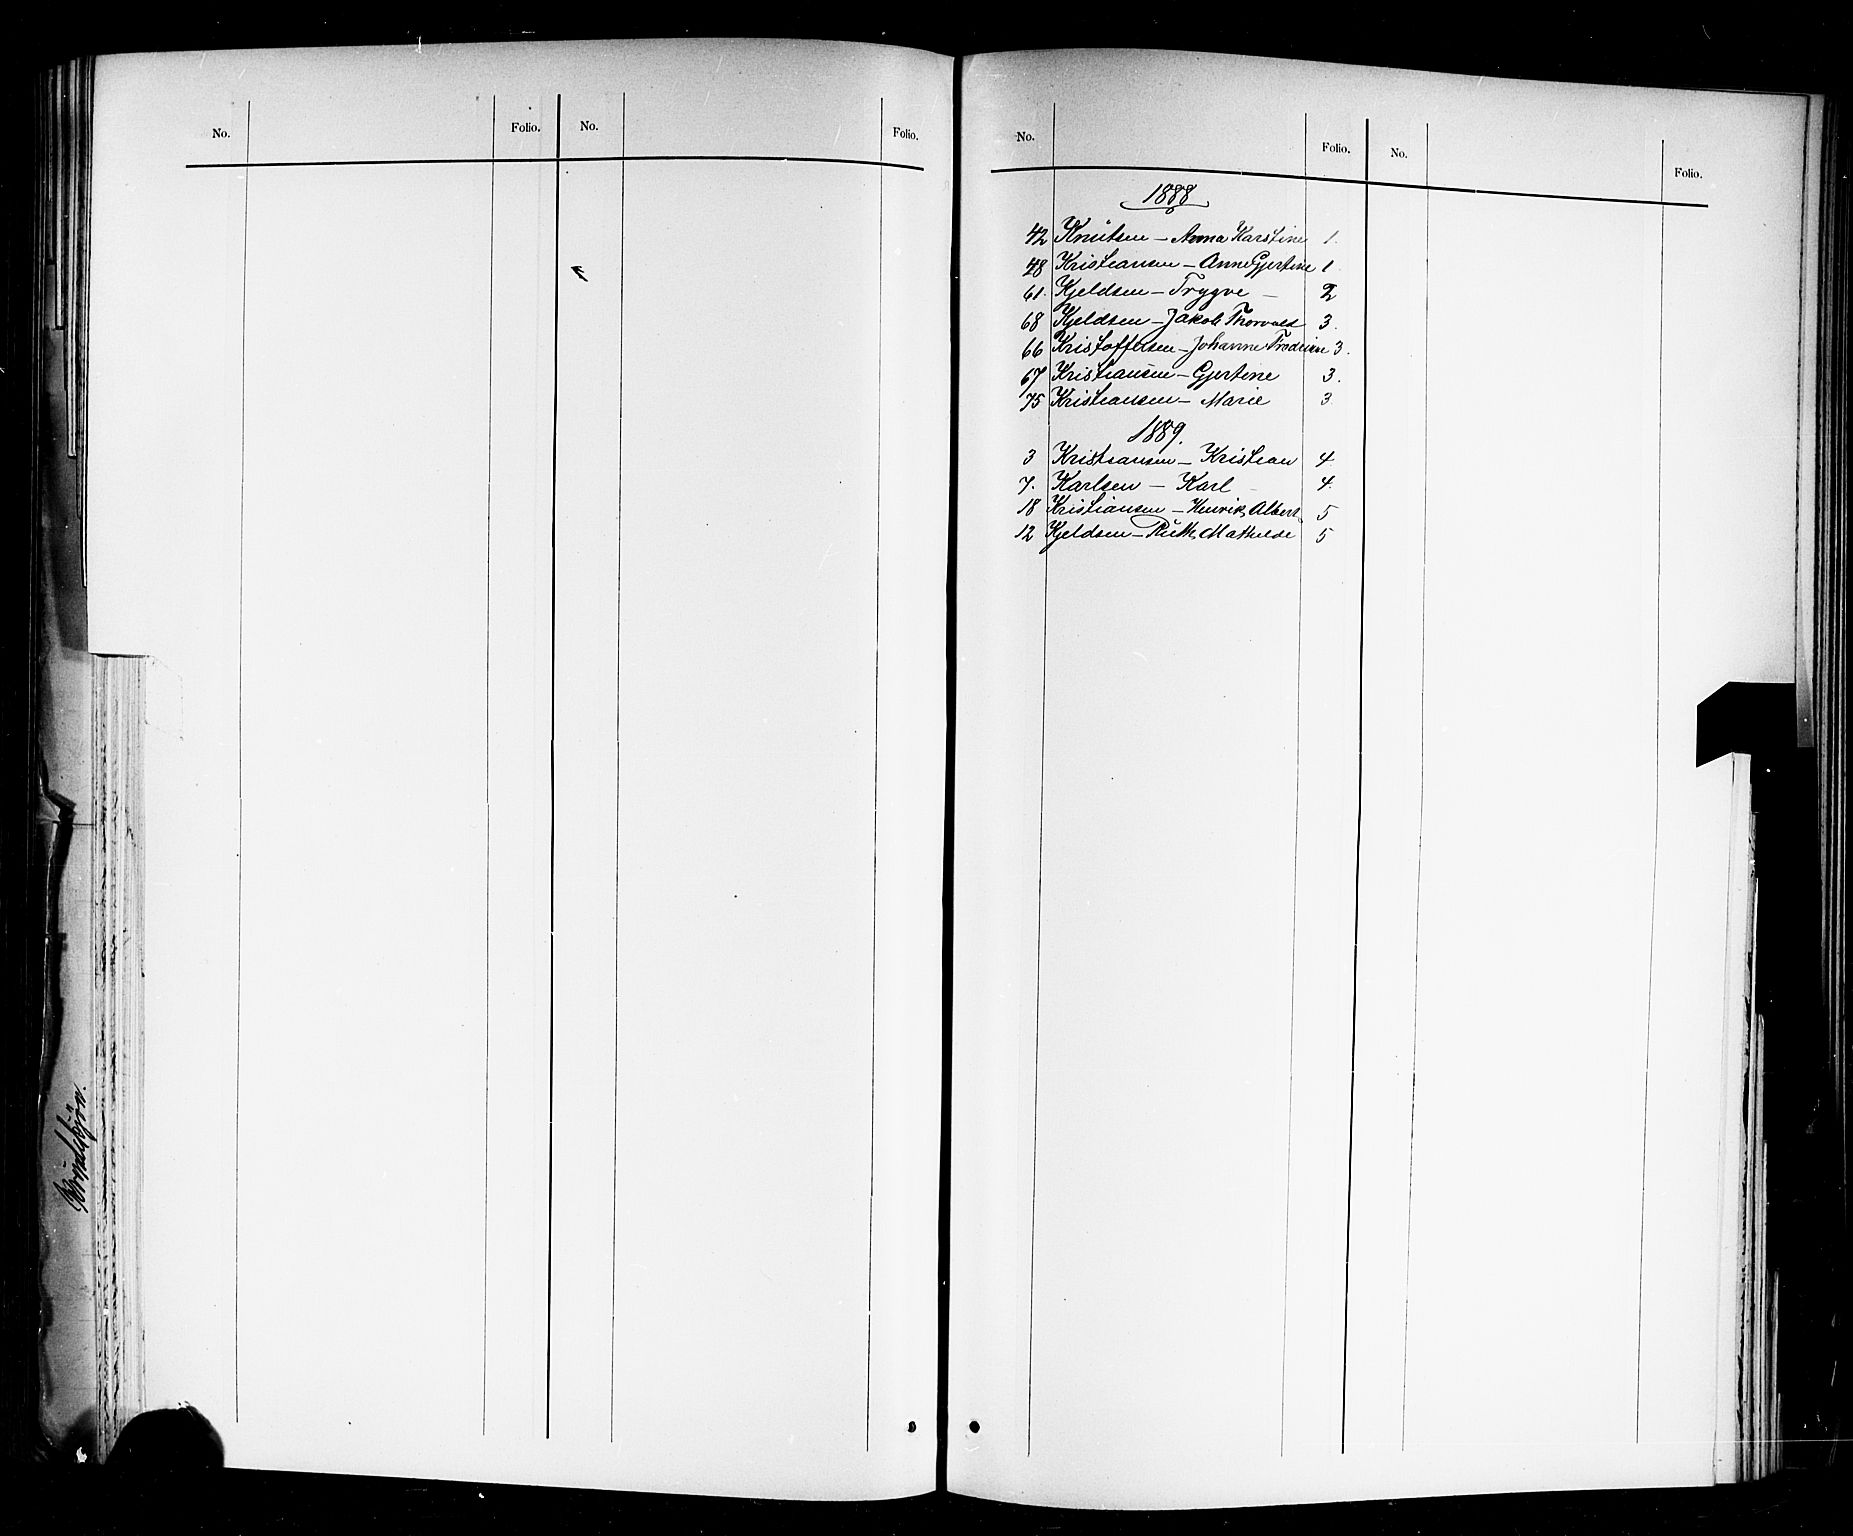 No. Folio. No. Folio.
No. Folio. No. Folio.
1888
42 Knutsen - Anna Karstine 1.
48 Kristiansen - Anne Gjertine 1
61. Kjeldsen - Trygve - 2
68 Kjeldsen - Jakob Thorvald 3.
66 Kristoffersen - Johanne 3.
67 Kristiansen - Gjertine 3.
75 Kristiansen - Marie 3.
1889.
3 Kristiansen - Kristian 4.
7. Karlsen - Karl - 4.
18 Kristiansen - Henrik Albert 5
12 Kjeldsen - Ruth Mathilde 5